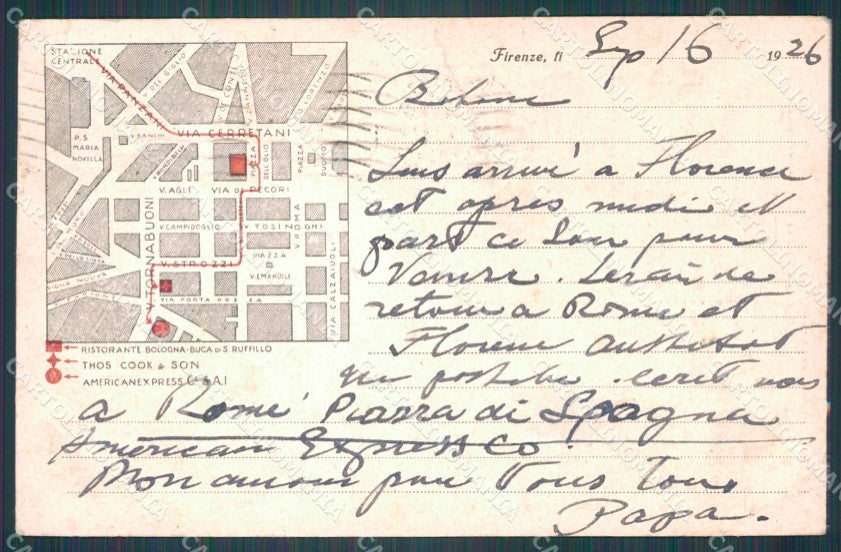 Firenze, li Sep 16 1926
Suis arrivé a Florence
cet apres midi et
part ce Soir pour
Venise. Serai de
retour a Rome et
Florence aussitot
que possible. ecret vous
a Rome Piazza di Spagna
American Express Co.
Mon amour pour Vous Tous
Papa.
STAZIONE
CENTRALE
VIA PANZANI
V. DEL GIGLIO
V. CONTI
S. LORENZO
P. S.
MARIA
NOVELLA
V. BANCHI
VIA CERRETANI
PIAZZA
DELL'OLIO
PIAZZA
DUOMO
V. AGLI
VIA DE PECORI
V. TORNABUONI
V. CAMPIDOGLIO
V. TOSINGHI
V. ROMA
V. STROZZI
PIAZZA
V. EMANUELE
VIA CALZAIUOLI
VIGNA NUOVA
VIA PORTA ROZZA
RISTORANTE BOLOGNA-BUCA DI S. RUFFILLO
THOS COOK & SON
AMERICAN EXPRESS C. S.A.I
CARTOLINOMANIA